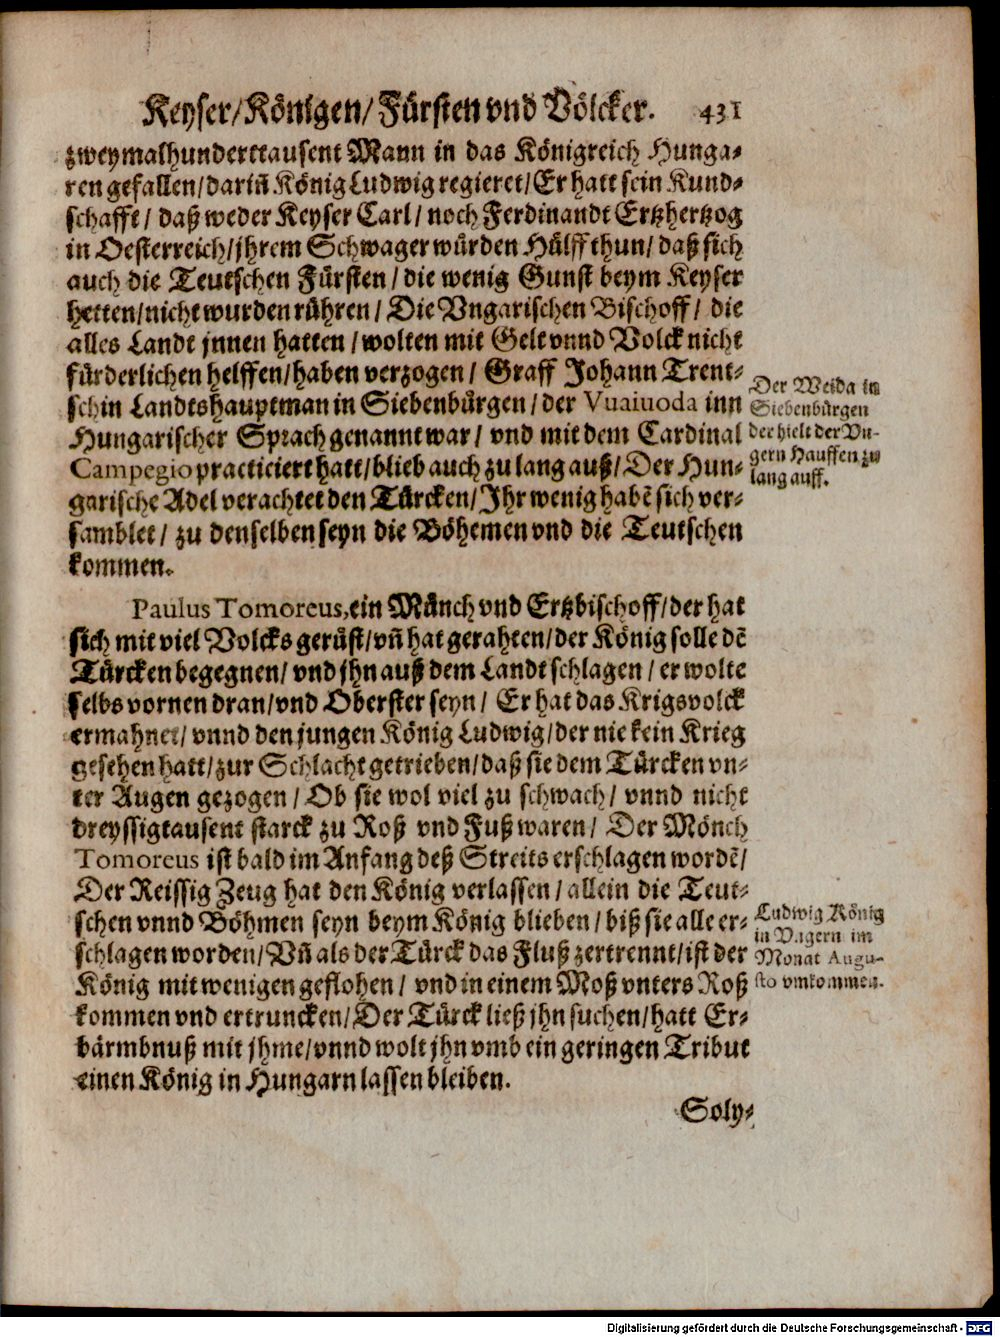 Keyser/Königen/Fürsten vnd Völcker. 431
zweymalhunderttausent Mann in das Königreich Hunga-
ren gefallen/darin̄ König Ludwig regieret/Er hatt sein Kund-
schafft/ daß weder Keyser Carl/ noch Ferdinandt Ertzhertzog
in Oesterreich/jhrem Schwager würden Hülff thun/ daß sich
auch die Teutschen Fürsten/ die wenig Gunst beym Keyser
hetten/nicht wurden rühren/ Die Vngarischen Bischoff/ die
alles Landt jnnen hatten/wolten mit Gelt vnnd Volck nicht
fürderlichen helffen/haben verzogen/ Graff Johann Trent-
schin Landtshauptman in Siebenbürgen/ der Vuaiuoda inn
Hungarischer Sprach genannt war/ vnd mit dem Cardinal
Campegio practiciert hatt/blieb auch zu lang auß/Der Hun-
garische Adel verachtet den Türcken/Jhr wenig habẽ sich ver-
samblet/ zu denselben seyn die Böhemen vnd die Teutschen
kommen.
Der Weida in
Siebenbürgen
der hielt der Vn-
gern Hauffen zu
lang auff.
Paulus Tomoreus, ein Münch vnd Ertzbischoff/der hat
sich mit viel Volcks gerüst/vn̄ hat gerahten/der König solle dẽ
Türcken begegnen/ vnd jhn auß dem Landt schlagen/ er wolte
selbs vornen dran/vnd Oberster seyn/ Er hat das Krigsvolck
ermahnet/ vnnd den jungen König Ludwig/der nie kein Krieg
gesehen hatt/zur Schlacht getrieben/daß sie dem Türcken vn-
ter Augen gezogen/ Ob sie wol viel zu schwach/ vnnd nicht
dreyssigtausent starck zu Roß vnd Fuß waren/ Der Mönch
Tomoreus ist bald im Anfang deß Streits erschlagen wordẽ/
Der Reissig Zeug hat den König verlassen/ allein die Teut-
schen vnnd Böhmen seyn beym König blieben/ biß sie alle er-
schlagen worden/Vn̄ als der Türck das Fluß zertrennt/ist der
König mit wenigen geflohen/ vnd in einem Moß vnters Roß
kommen vnd ertruncken/Der Türck ließ jhn suchen/hatt Er-
bärmbnuß mit jhme/vnnd wolt jhn vmb ein geringen Tribut
einen König in Hungarn lassen bleiben.
Ludwig König
in Vngern im
Monat Augu-
sto vmkommen.
Soly-
Digitalisierung gefördert durch die Deutsche Forschungsgemeinschaft - DFG